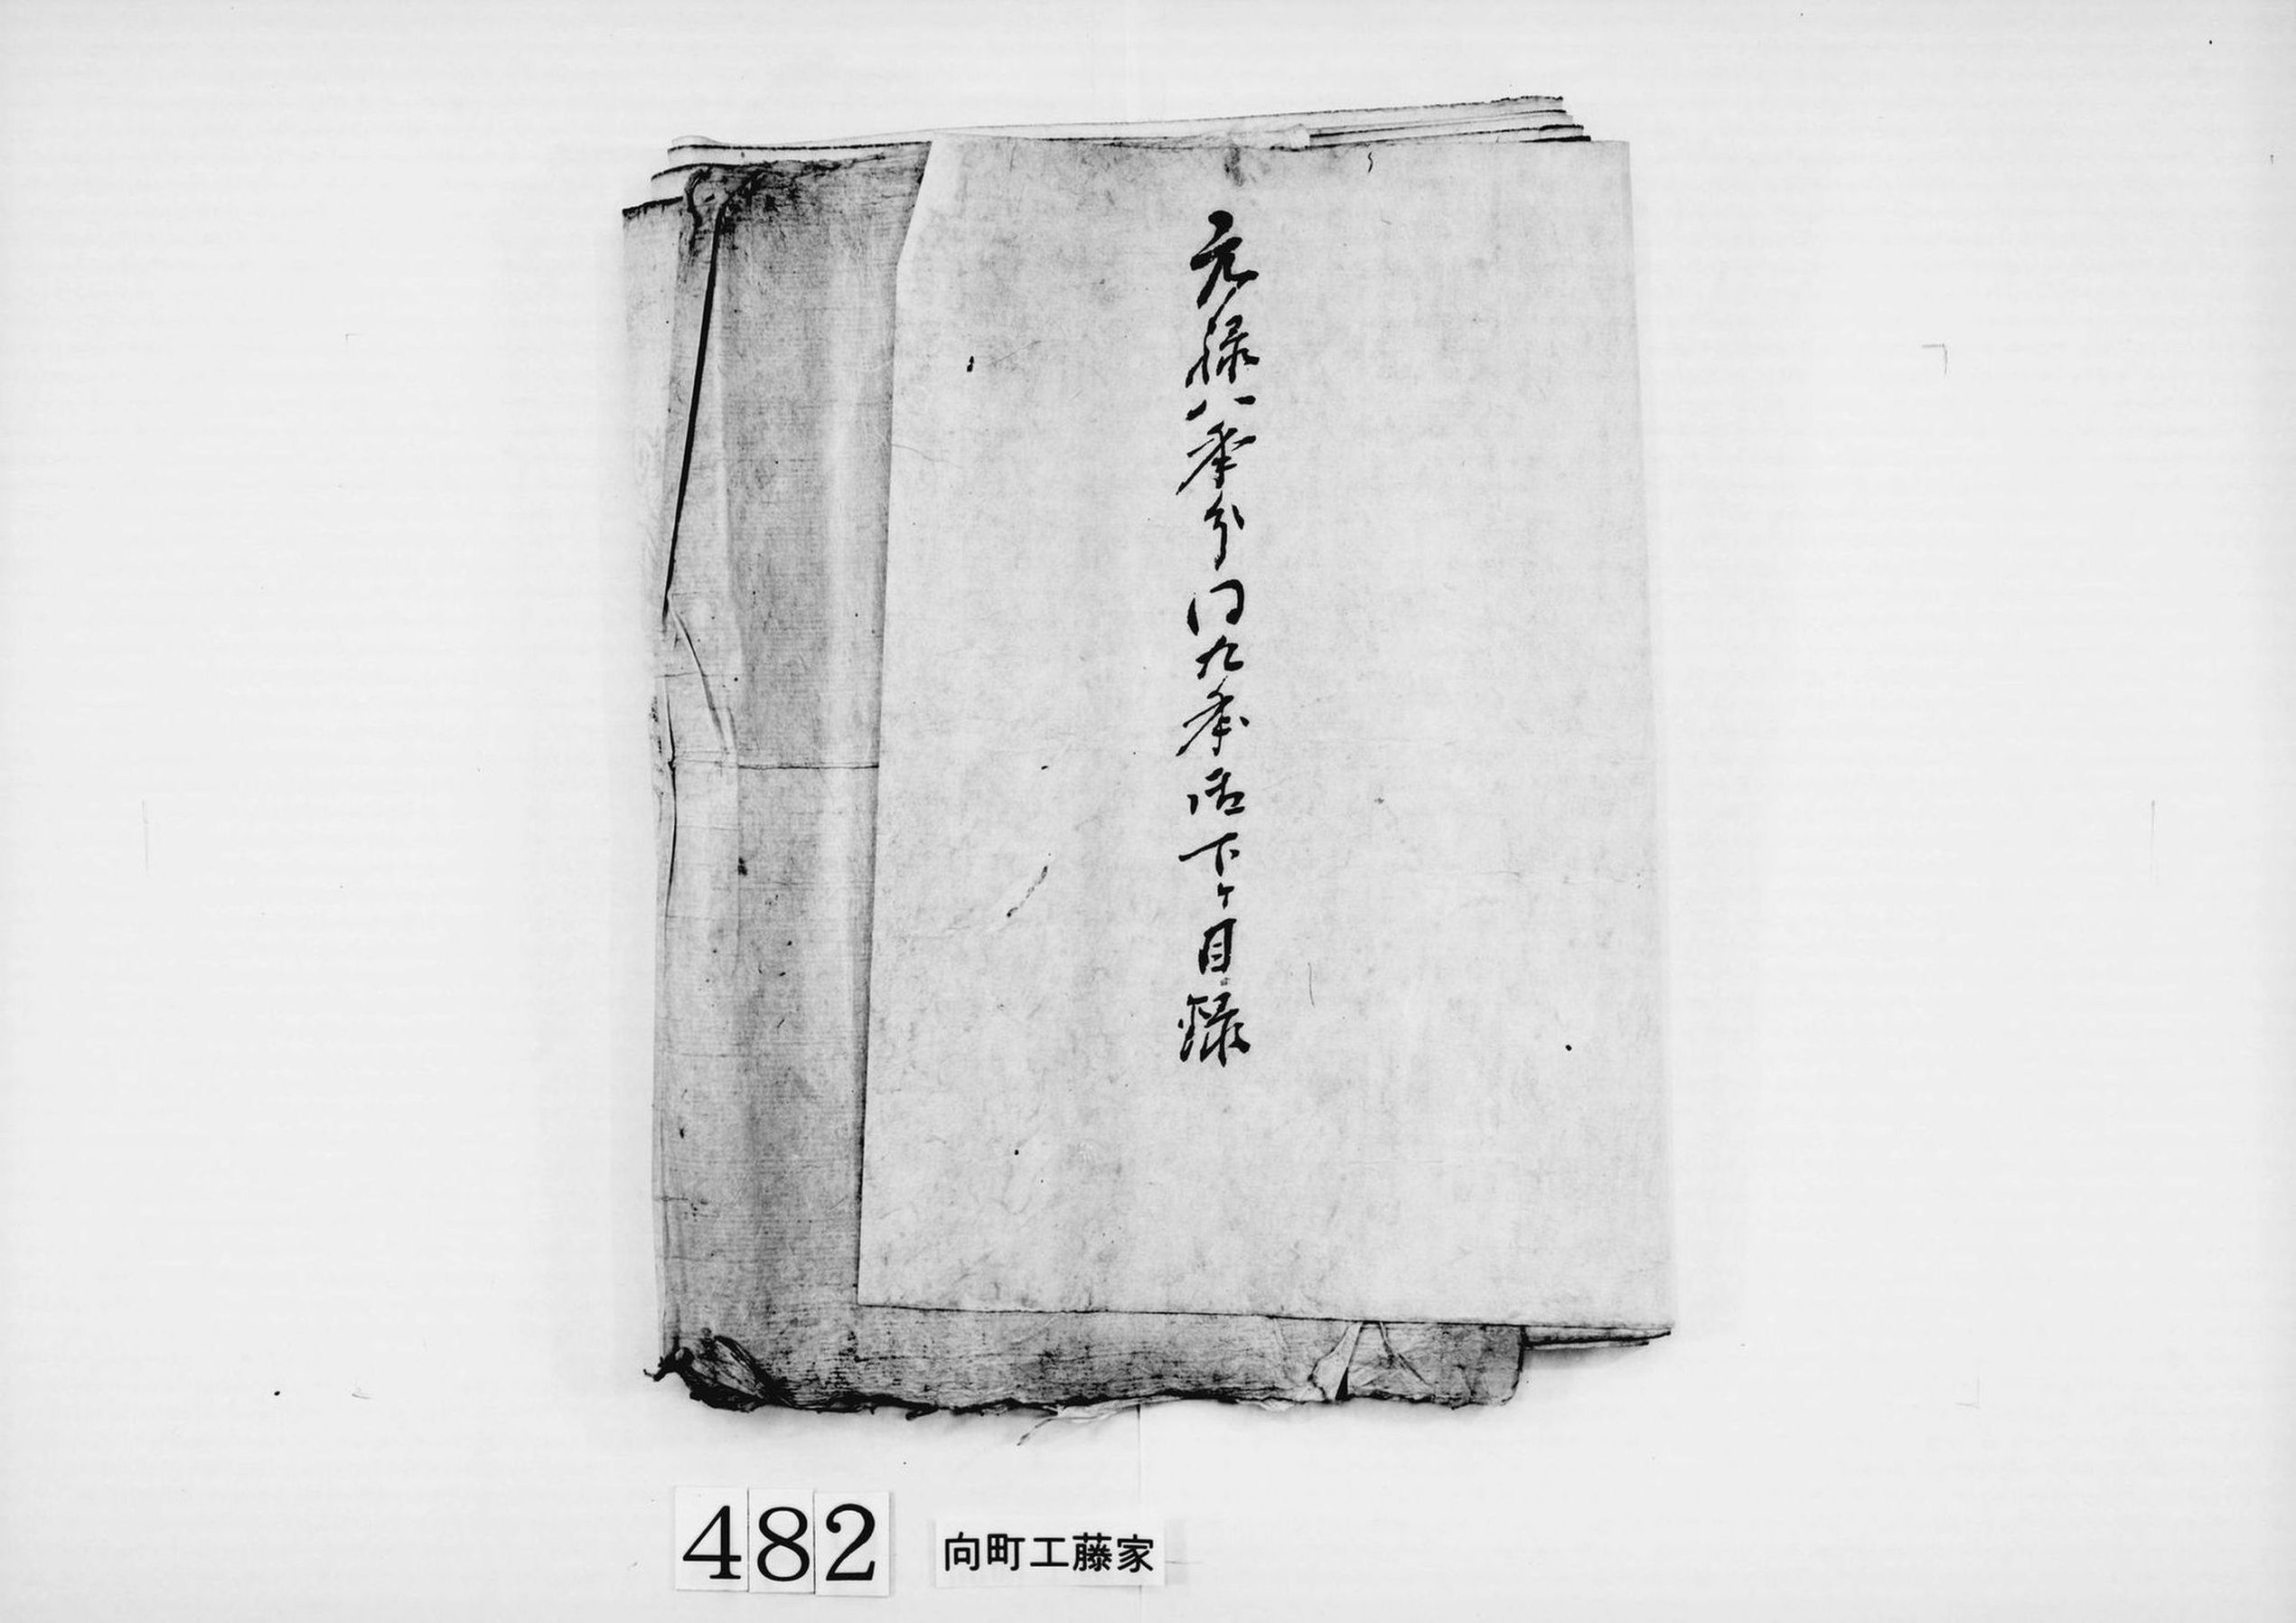 元禄八年分同九年活下ケ目録
482
向町工藤家